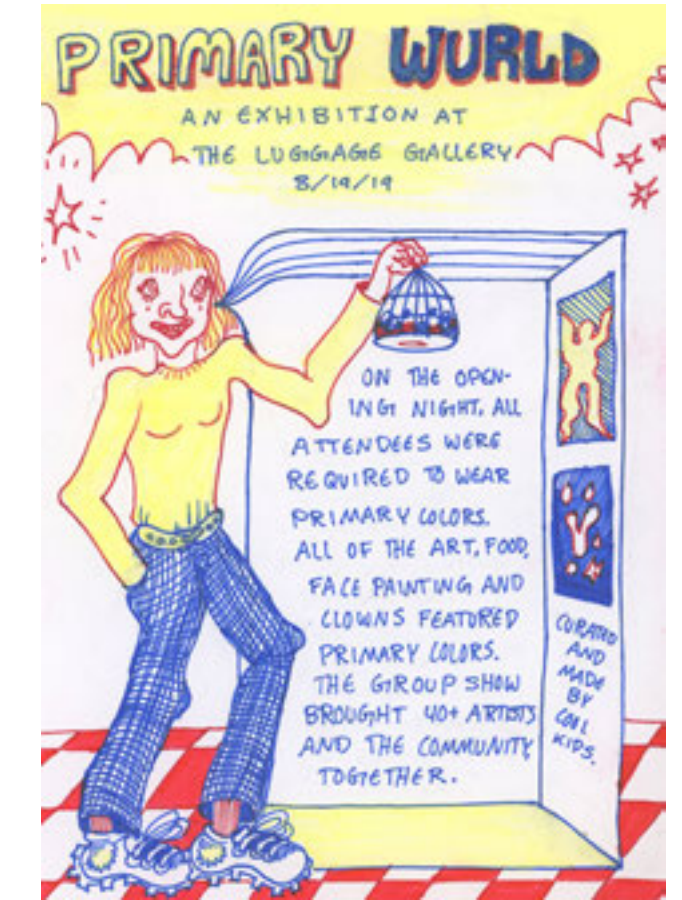 PRIMARY WURLD
AN EXHIBITION AT
THE LUGGAGE GALLERY
8/19/19
ON THE OPEN-
ING NIGHT, ALL
ATTENDEES WERE
REQUIRED TO WEAR
PRIMARY COLORS.
ALL OF THE ART, FOOD,
FACE PAINTING AND
CLOWNS FEATURED
PRIMARY COLORS.
THE GROUP SHOW
BROUGHT 40+ ARTISTS
AND THE COMMUNITY
TOGETHER.
CURATED
AND
MADE
BY
COOL
KIDS.